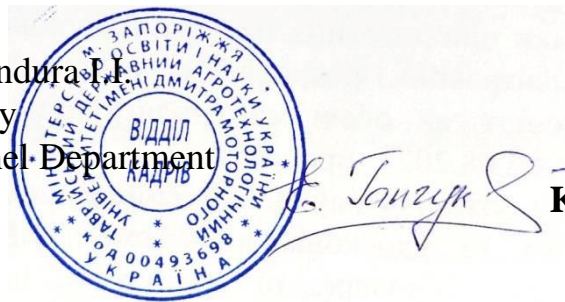 ndura I.I.
y
nel Department
К
* м. ЗАПОРІЖЖЯ *
МІНІСТЕРСТВО ОСВІТИ І НАУКИ УКРАЇНИ
ТАВРІЙСЬКИЙ ДЕРЖАВНИЙ АГРОТЕХНОЛОГІЧНИЙ
УНІВЕРСИТЕТ ІМЕНІ ДМИТРА МОТОРНОГО
ВІДДІЛ
КАДРІВ
* код 00493698 *
УКРАЇНА